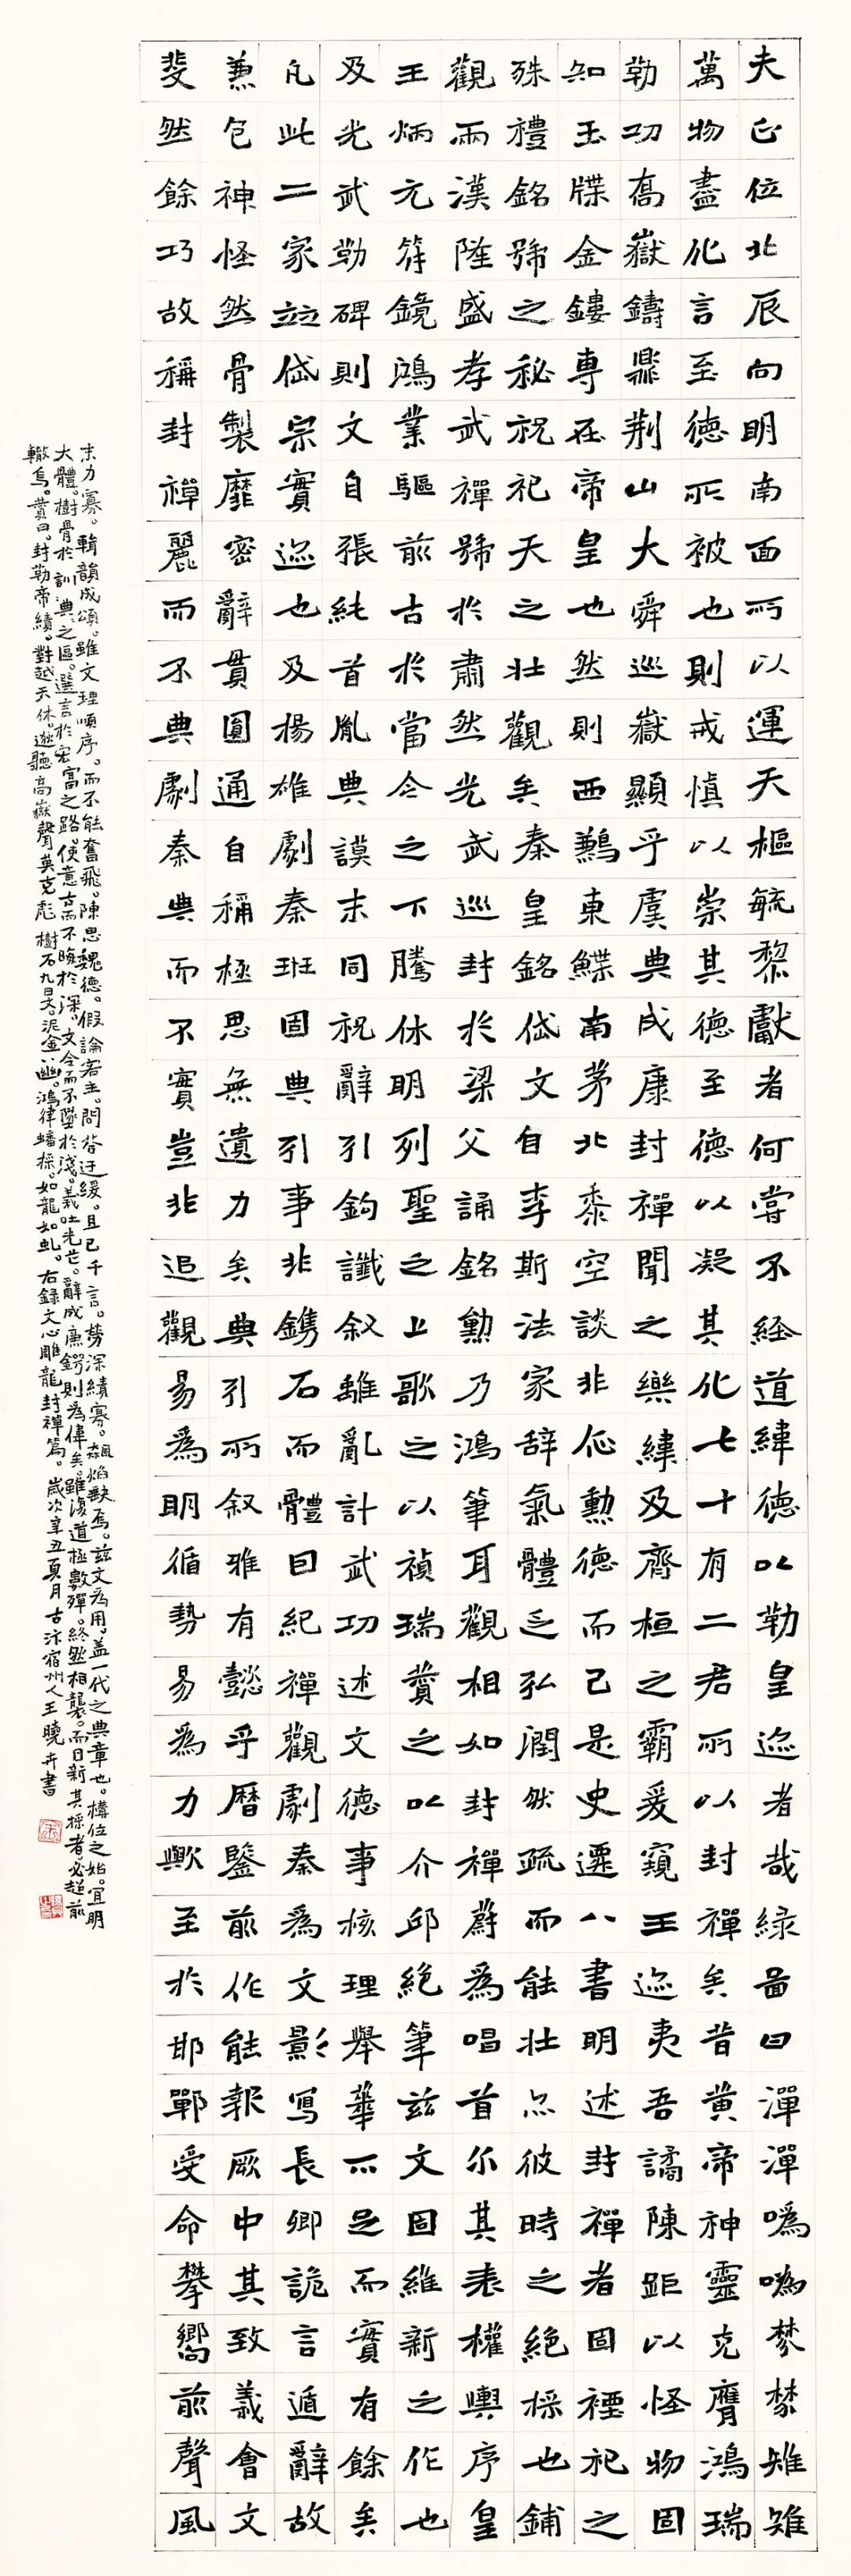 夫正位北辰向明南面所以運天樞毓黎獻者何嘗不經道緯德以勒皇迹者哉綠圖曰潬潬噅噅棼棼雉雉
萬物盡化言至德所被也則戒慎以崇其德至德以凝其化七十有二君所以封禪矣昔黃帝神靈克膺鴻瑞
勒功喬嶽鑄鼎荊山大舜巡嶽顯乎虞典成康封禪聞之樂緯及齊桓之霸爰窺王迹夷吾譎陳距以怪物固
知玉牒金鏤專在帝皇也然則西鶼東鰈南茅北黍空談非征勳德而已是史遷八書明述封禪者固禋祀之
殊禮銘號之秘祝祀天之壯觀矣秦皇銘岱文自李斯法家辞氣體乏弘潤然疏而能壯亦彼時之絕採也鋪
觀兩漢隆盛孝武禪號於肅然光武巡封於梁父誦銘勳乃鴻筆耳觀相如封禪蔚為唱首尔其表權輿序皇
王炳元符鏡鴻業驅前古於當今之下騰休明列聖之上歌之以禎瑞贊之以介邱絕筆茲文固維新之作也
及光武勒碑則文自張純首胤典謨末同祝辭引鉤讖叙離亂計武功述文德事核理舉華不足而實有餘矣
凡此二家並岱宗實迹也及揚雄劇秦班固典引事非鐫石而體因紀禪觀劇秦為文影寫長卿詭言遁辭故
兼包神怪然骨製靡密辭貫圓通自稱極思無遺力矣典引所叙雅有懿乎曆鑒前作能報厥中其致義會文
斐然餘巧故稱封禪麗而不典劇秦典而不實豈非追觀易為明循勢易為力歟至於邯鄲受命攀嚮前聲風
末力寡。輯韻成頌。雖文理順序。而不能奮飛。陳思魏德。假論客主。問答迂緩。且已千言。勞深績寡。飆焰缺焉。茲文為用。蓋一代之典章也。構位之始。宜明
大體。樹骨於訓典之區。選言於宏富之路。使意古而不晦於深。文今而不墜於淺。義吐光芒。辭成廉鍔。則為偉矣。雖復道極數殫。終然相襲。而日新其採者。必超前
轍焉。贊曰。封勒帝績。對越天休。逖聽高嶽。聲英克彪。樹石九旻。泥金八幽。鴻律蟠採。如龍如虬。右録文心雕龍封禪篇。歲次辛丑夏月古汴宿州人王曉卉書